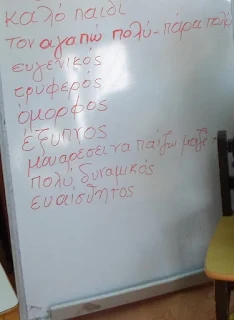 καλό παιδί
τον αγαπώ πολύ-πάρα πολύ
ευγενικός
τρυφερός
όμορφος
έξυπνος
μου αρέσει να παίζω μαζί
πολύ δυναμικός
ευαίσθητος